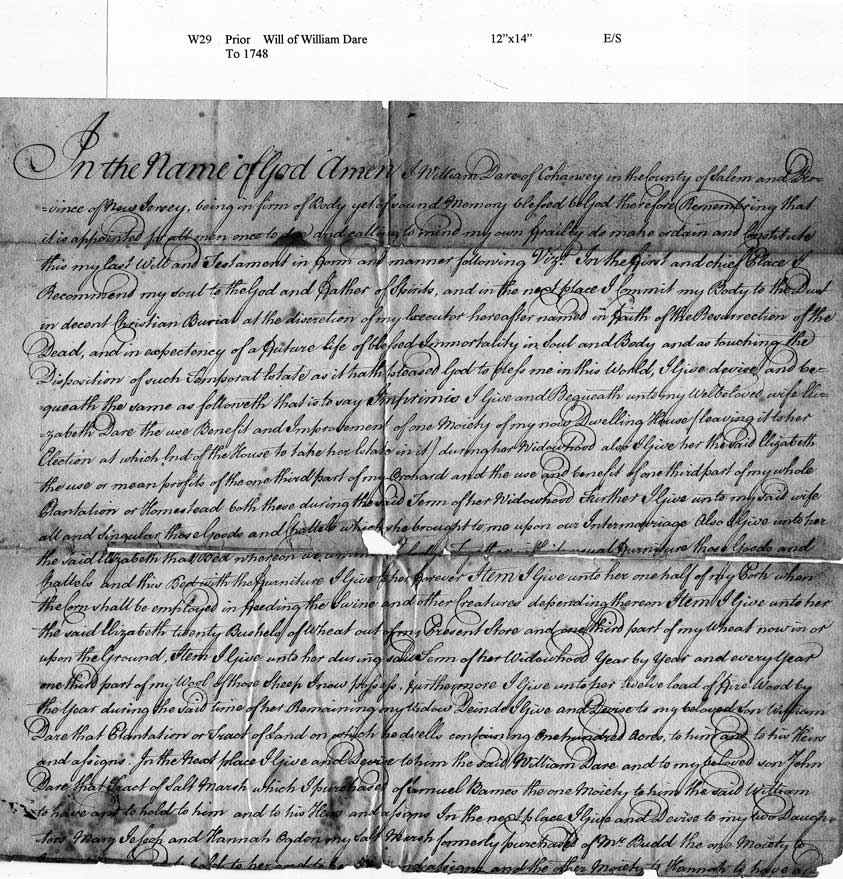 W29 Prior Will of William Dare 12"x14" E/S
To 1748
In the Name of God Amen I William Dare of Cohansey in the County of Salem and Pro-
-vince of New Jersey, being infirm of Body yet of sound Memory blessed be God therefore Remembring that
it is appointed for all men once to dye and calling to mind my own frailty do make ordain and Constitute
this my last Will and Testament in form and manner following Vizt. In the first and chief Place I
Recommend my Soul to the God and Father of Spirits, and in the next place I Commit my Body to the Dust
in decent Christian Burial at the discretion of my Executor hereafter named in Faith of the Resurrection of the
Dead, and in expectency of a future life of blessed Immortality in Soul and Body and as touching the
Disposition of such Temporal Estate as it hath pleased God to bless me in this World, I Give devise and be-
queath the same as followeth that is to say Imprimis I Give and Bequeath unto my Welbeloved wife Eli-
-zabeth Dare the use Benefit and Improvement of one Moiety of my now Dwelling House (leaving it to her
Election at which End of the House to take her Estate in it) during her Widowhood also I Give her the said Elizabeth
the use or mean profits of the one third part of my Orchard and the use and benefit of one third part of my whole
Plantation or Homestead both these during the said Term of her Widowhood Further I Give unto my said wife
all and singular those Goods and Chattels which she brought to me upon our Intermarriage Also I Give unto her
the said Elizabeth that Bed whereon we usual Furniture those Goods and
Chattels and this Bed with the Furniture I Give to her forever Item I Give unto her one half of my Pork when
the Corn shall be employed in feeding the Swine and other Creatures depending thereon Item I Give unto her
the said Elizabeth twenty Bushels of Wheat out of my Present Store and one third part of my Wheat now in or
upon the Ground, Item I Give unto her during said Term of her Widowhood Year by Year and every Year
one third part of my Wool of those Sheep I now possess, furthermore I Give unto her twelve load of Fire Wood by
the Year during the said time of her Remaining my Widow Deinde I Give and Devise to my beloved Son William
Dare that Plantation or Tract of Land on which he dwells containing One hundred Acres, to him and to his Heirs
and assigns. In the Next place I Give and Devise to him the said William Dare and to my beloved son John
Dare that Tract of Salt Marsh which I purchased of Samuel Barnes the one Moiety to him the said William
to have and to hold to him and to his Heirs and assigns In the next place I Give and Devise to my two Daugh-
ters Mary Jeseph and Hannah Ogden my Salt Marsh formerly purchased of Mr Budd the one Moiety to
to her and to assigns and the other Moiety to Hannah to have